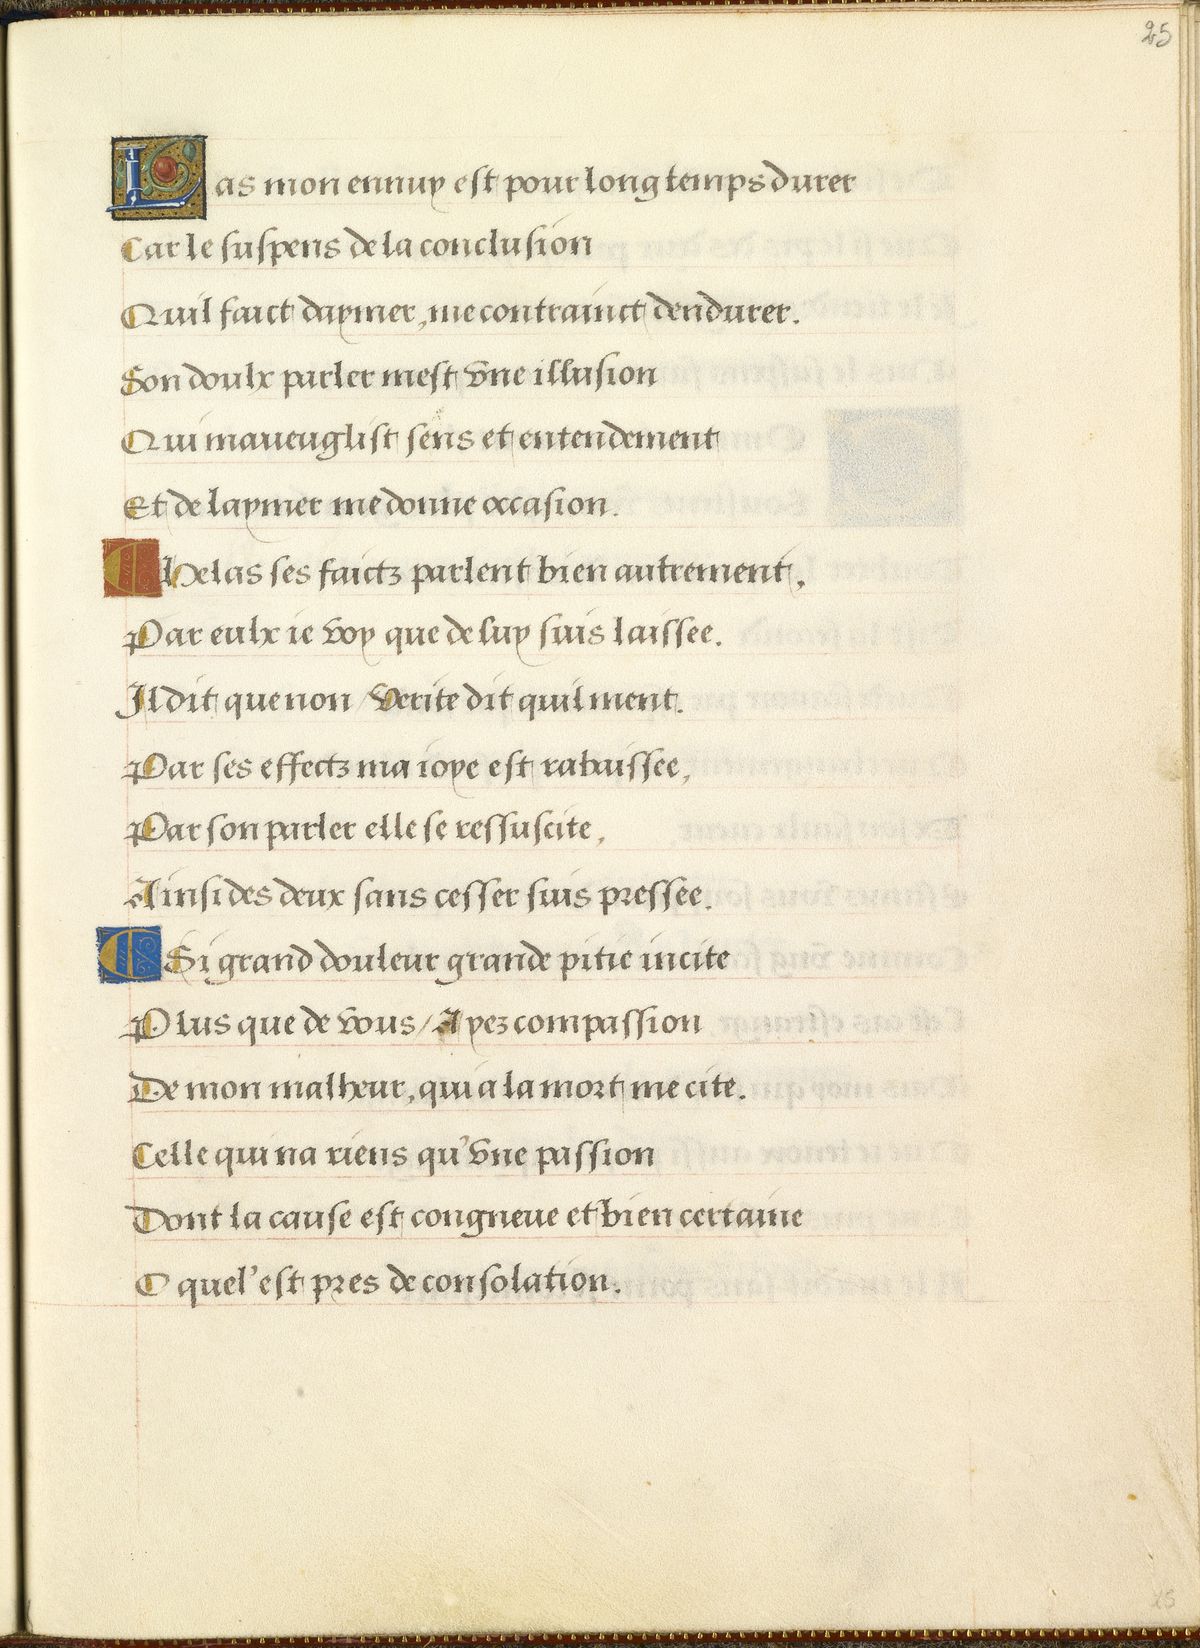 25
Las mon ennuy est pour long temps durer
Car le suspens de la conclusion
Quil faict daymer, me contrainct dendurer.
Son doulx parler mest vne illusion
Qui maueuglist sens et entendement
Et de laymer me donne occasion.
Helas ses faictz parlent bien autrement,
Par eulx ie voy que de luy suis laissee.
Il dit que non / Verite dit quil ment.
Par ses effectz ma ioye est rabaissee,
Par son parler elle se ressuscite,
Ainsi des deux sans cesser suis pressee.
Si grand douleur grande pitie incite
Plus que de vous / Ayez compassion
De mon malheur, qui a la mort me cite.
Celle qui na riens qu'vne passion
Dont la cause est congneue et bien certaine
O quel' est pres de consolation.
25